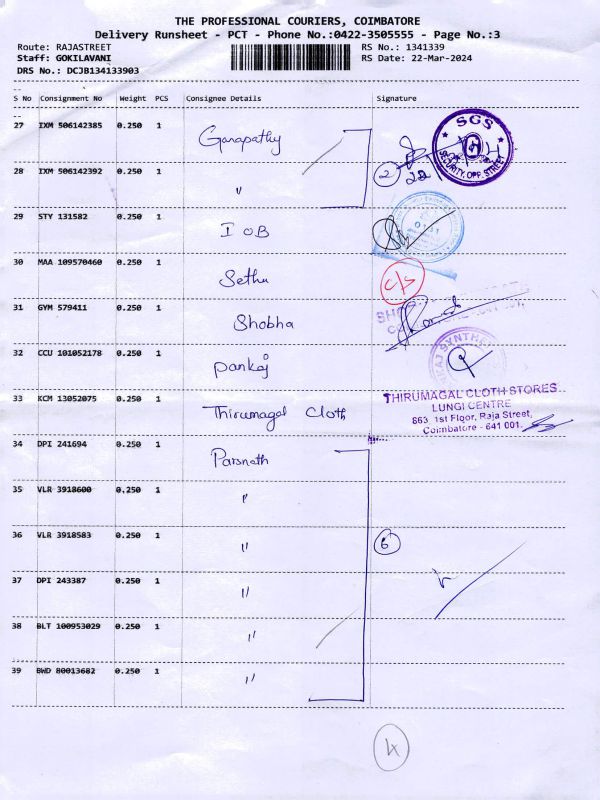 THE PROFESSIONAL COURIERS, COIMBATORE
Delivery Runsheet - PCT - Phone No.:0422-3505555 - Page No.:3
Route: RAJASTREET RS No.: 1341339
Staff: GOKILAVANI RS Date: 22-Mar-2024
DRS No.: DCJB134133903
S No Consignment No Weight PCS Consignee Details Signature
27 IXM 506142385 0.250 1 Ganapathy
SGS
SECURITY, OPP. STREET
28 IXM 506142392 0.250 1 " 2
29 STY 131582 0.250 1 IOB
30 MAA 109570460 0.250 1 Sethu c/s
31 GYM 579411 0.250 1 Shobha
32 CCU 101052178 0.250 1 Pankaj
33 KCM 13052075 0.250 1 Thirumagal Cloth
THIRUMAGAL CLOTH STORES
LUNGI CENTRE
863, 1st Floor, Raja Street,
Coimbatore - 641 001.
34 DPI 241694 0.250 1 Parsnath
35 VLR 3918600 0.250 1 "
36 VLR 3918583 0.250 1 " 6
37 DPI 243387 0.250 1 "
38 BLT 100953029 0.250 1 "
39 BWD 80013682 0.250 1 "